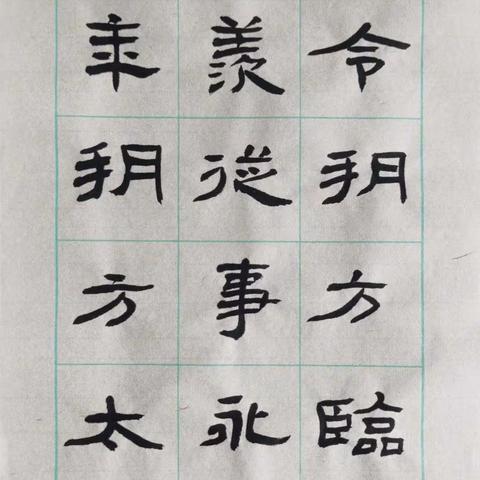 令朔方臨
羨從事永
年朔方太